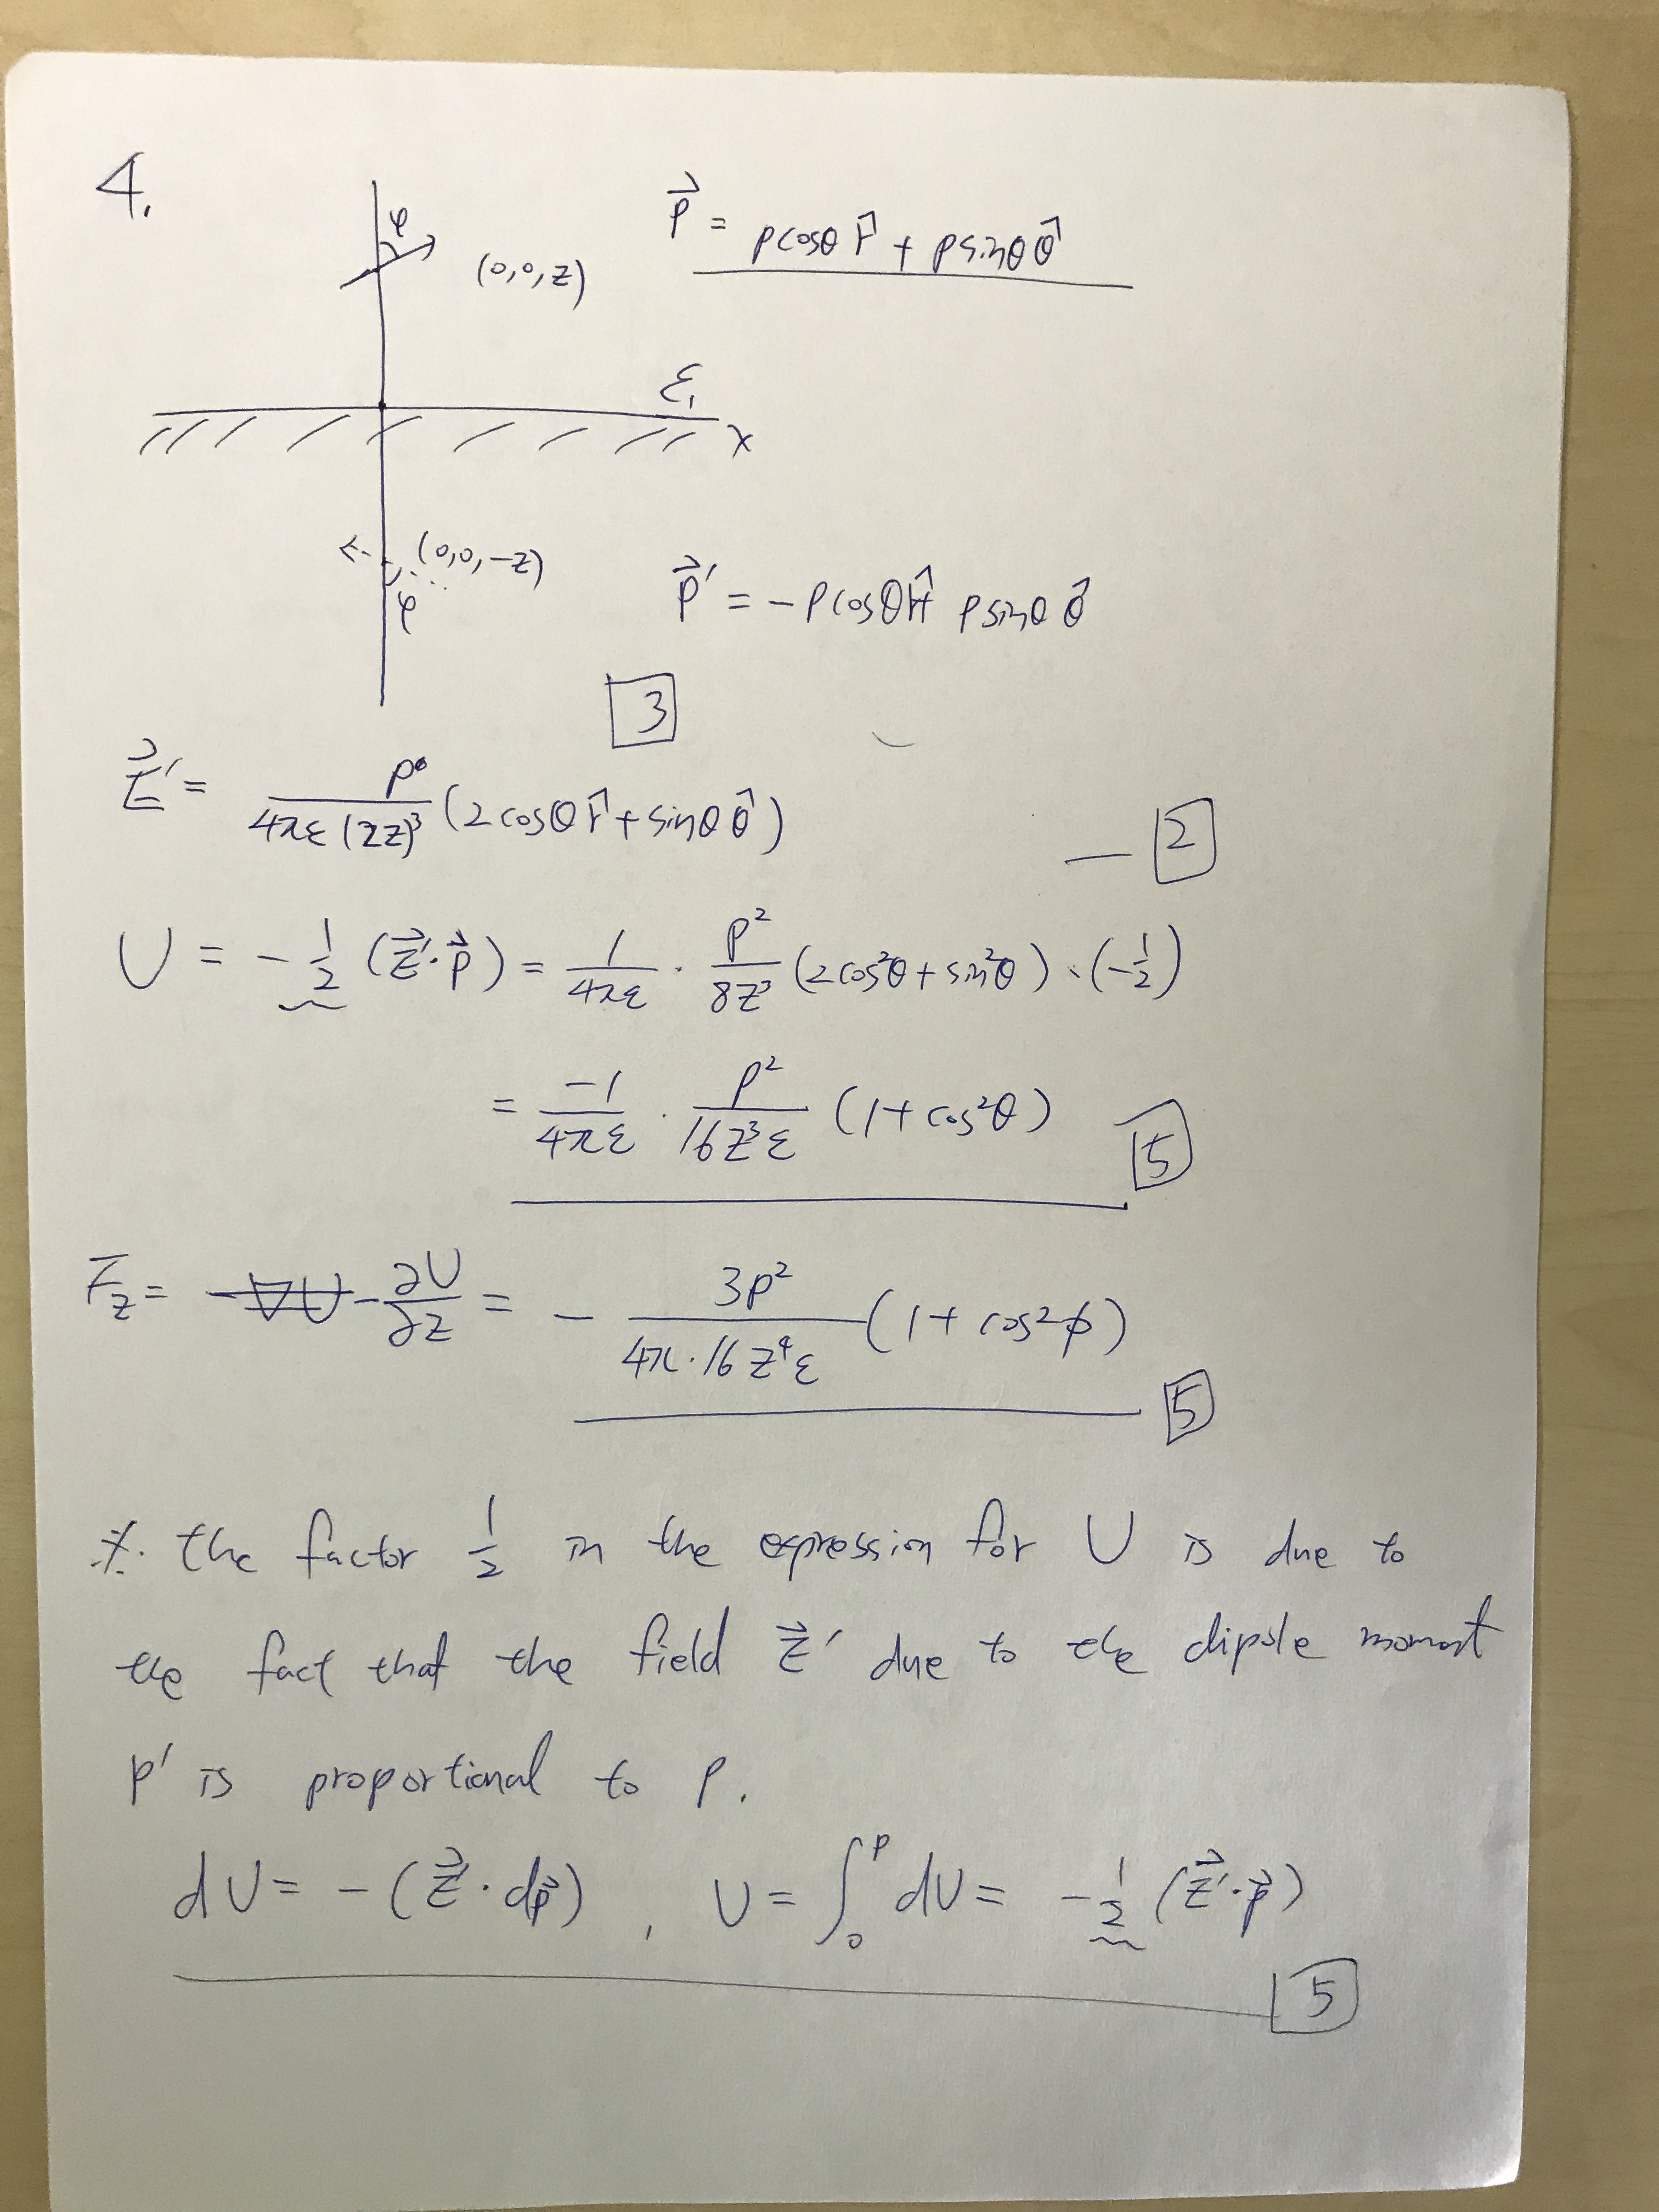 4.
φ
(0,0,z)
p⃗ = p cosθ r̂ + p sinθ θ̂
ε₁
x
(0,0,-z)
φ
p⃗′ = - p cosθ r̂ + p sinθ θ̂
3
E⃗′ = p / (4πε (2z)³) (2cosθ r̂ + sinθ θ̂)
— 2
U = - 1/2 (E⃗′·p⃗) = 1/(4πε) · p²/(8z³) (2cos²θ + sin²θ) · (-1/2)
= -1/(4πε) · p²/(16z³ε) (1 + cos²θ)
5
F_z = -∇U - ∂U/∂z = - 3p²/(4π·16z⁴ε) (1 + cos²φ)
5
※. the factor 1/2 in the expression for U is due to
the fact that the field E⃗′ due to the dipole moment
p′ is proportional to p.
dU = - (E⃗′·dp⃗) , U = ∫₀ᵖ dU = - 1/2 (E⃗′·p⃗)
5